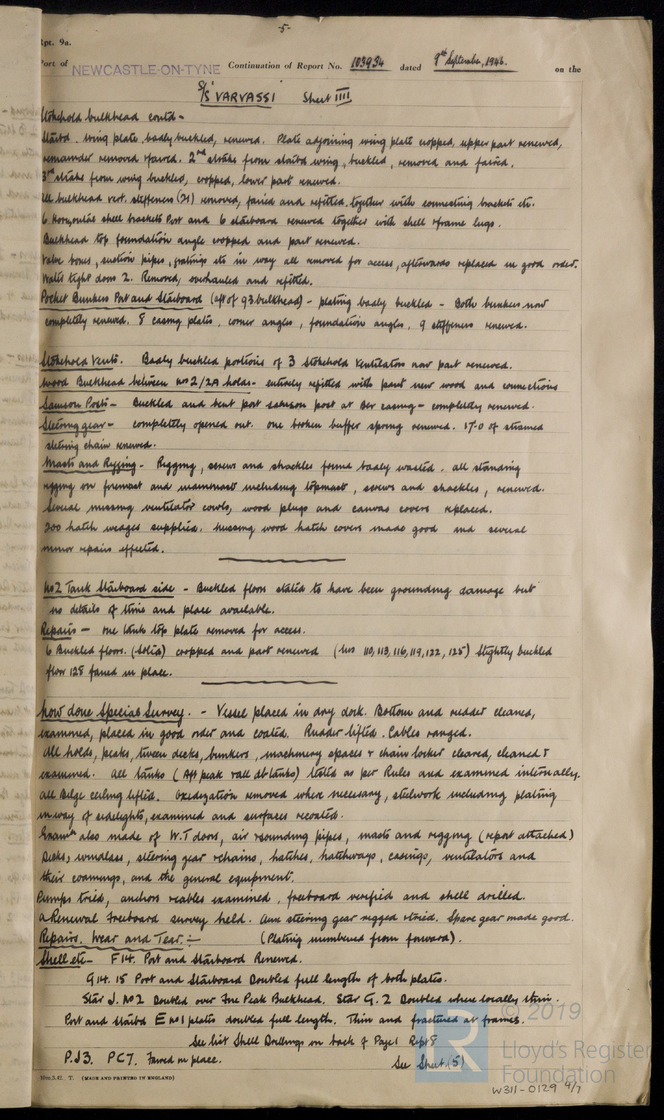 -5-
Rpt. 9a.
Port of NEWCASTLE-ON-TYNE Continuation of Report No. 103934 dated 9th September, 1946. on the
S/S "VARVASSI" Sheet IIII
Stokehold bulkhead contd -
Starbd. wing plate badly buckled, renewed. Plate adjoining wing plate cropped, upper part renewed,
remainder removed & faired. 2nd strake from starbd wing, buckled, removed and faired.
3rd strake from wing buckled, cropped, lower part renewed.
All bulkhead vert. stiffeners (21) removed, faired and refitted together with connecting brackets etc.
6 Horizontal shell brackets Port and 6 starboard renewed together with shell & frame lugs.
Bulkhead top foundation angle cropped and part renewed.
Valve boxes, suction pipes, gratings etc in way all removed for access, afterwards replaced in good order.
Water tight doors 2. Removed, overhauled and refitted.
Pocket Bunkers Port and Starboard (aft of 93 bulkhead) - plating badly buckled - Both bunkers now
completely renewed. 8 casing plates, corner angles, foundation angles, 9 stiffeners renewed.
Stokehold Vents. Badly buckled portions of 3 Stokehold Ventilators now part renewed.
Wood Bulkhead between No 2/2A holds - entirely refitted with part new wood and connections
Samson Posts - Buckled and bent port samson post at Blr casing - completely renewed.
Steering gear - completely opened out. one broken buffer spring renewed. 17-0 of strained
steering chain renewed.
Masts and Rigging - Rigging, screws and shackles found badly wasted. all standing
rigging on foremast and mainmast including topmast, screws and shackles, renewed.
Several missing ventilator cowls, wood plugs and canvas covers replaced.
200 hatch wedges supplied. Missing wood hatch covers made good and several
minor repairs effected.
No 2 Tank Starboard side - Buckled floors stated to have been grounding damage but
no details of time and place available.
Repairs - one tank top plate removed for access.
6 Buckled floors. (solid) cropped and part renewed (Nos 110, 113, 116, 119, 122, 125) Slightly buckled
floor 128 faired in place.
Now done Special Survey. - Vessel placed in dry dock. Bottom and rudder cleaned,
examined, placed in good order and coated. Rudder lifted. Cables ranged.
All holds, peaks, tween decks, bunkers, machinery spaces & chain locker cleared, cleaned &
examined. All tanks (Aft peak & all db tanks) tested as per Rules and examined internally.
All Bilge ceiling lifted. Oxidization removed where necessary, steelwork including plating
in way of sidelights, examined and surfaces recoated.
Examn also made of W.T doors, air & sounding pipes, masts and rigging (report attached)
Decks, windlass, steering gear & chains, hatches, hatchways, casings, ventilators and
their coamings, and the general equipment.
Pumps tried, anchors & cables examined, freeboard verified and shell drilled.
A Renewal Freeboard survey held. Aux steering gear rigged & tried. Spare gear made good.
Repairs. Wear and Tear :- (Plating numbered from forward).
Shell etc - F14. Port and Starboard Renewed.
G14. 15 Port and Starboard Doubled full length of both plates.
Star J. No 2 Doubled over Fore Peak Bulkhead. Star G. 2 Doubled where locally thin.
Port and Starbd E No 1 plates doubled full length. Thin and fractured at frames.
See list Shell Drillings on back of Page 1 Rept 8
P.J3. P C7. Faired in place. See Sheet (5)
T. (MADE AND PRINTED IN ENGLAND)
© 2019
Lloyd's Register
Foundation
W311-0129 4/7